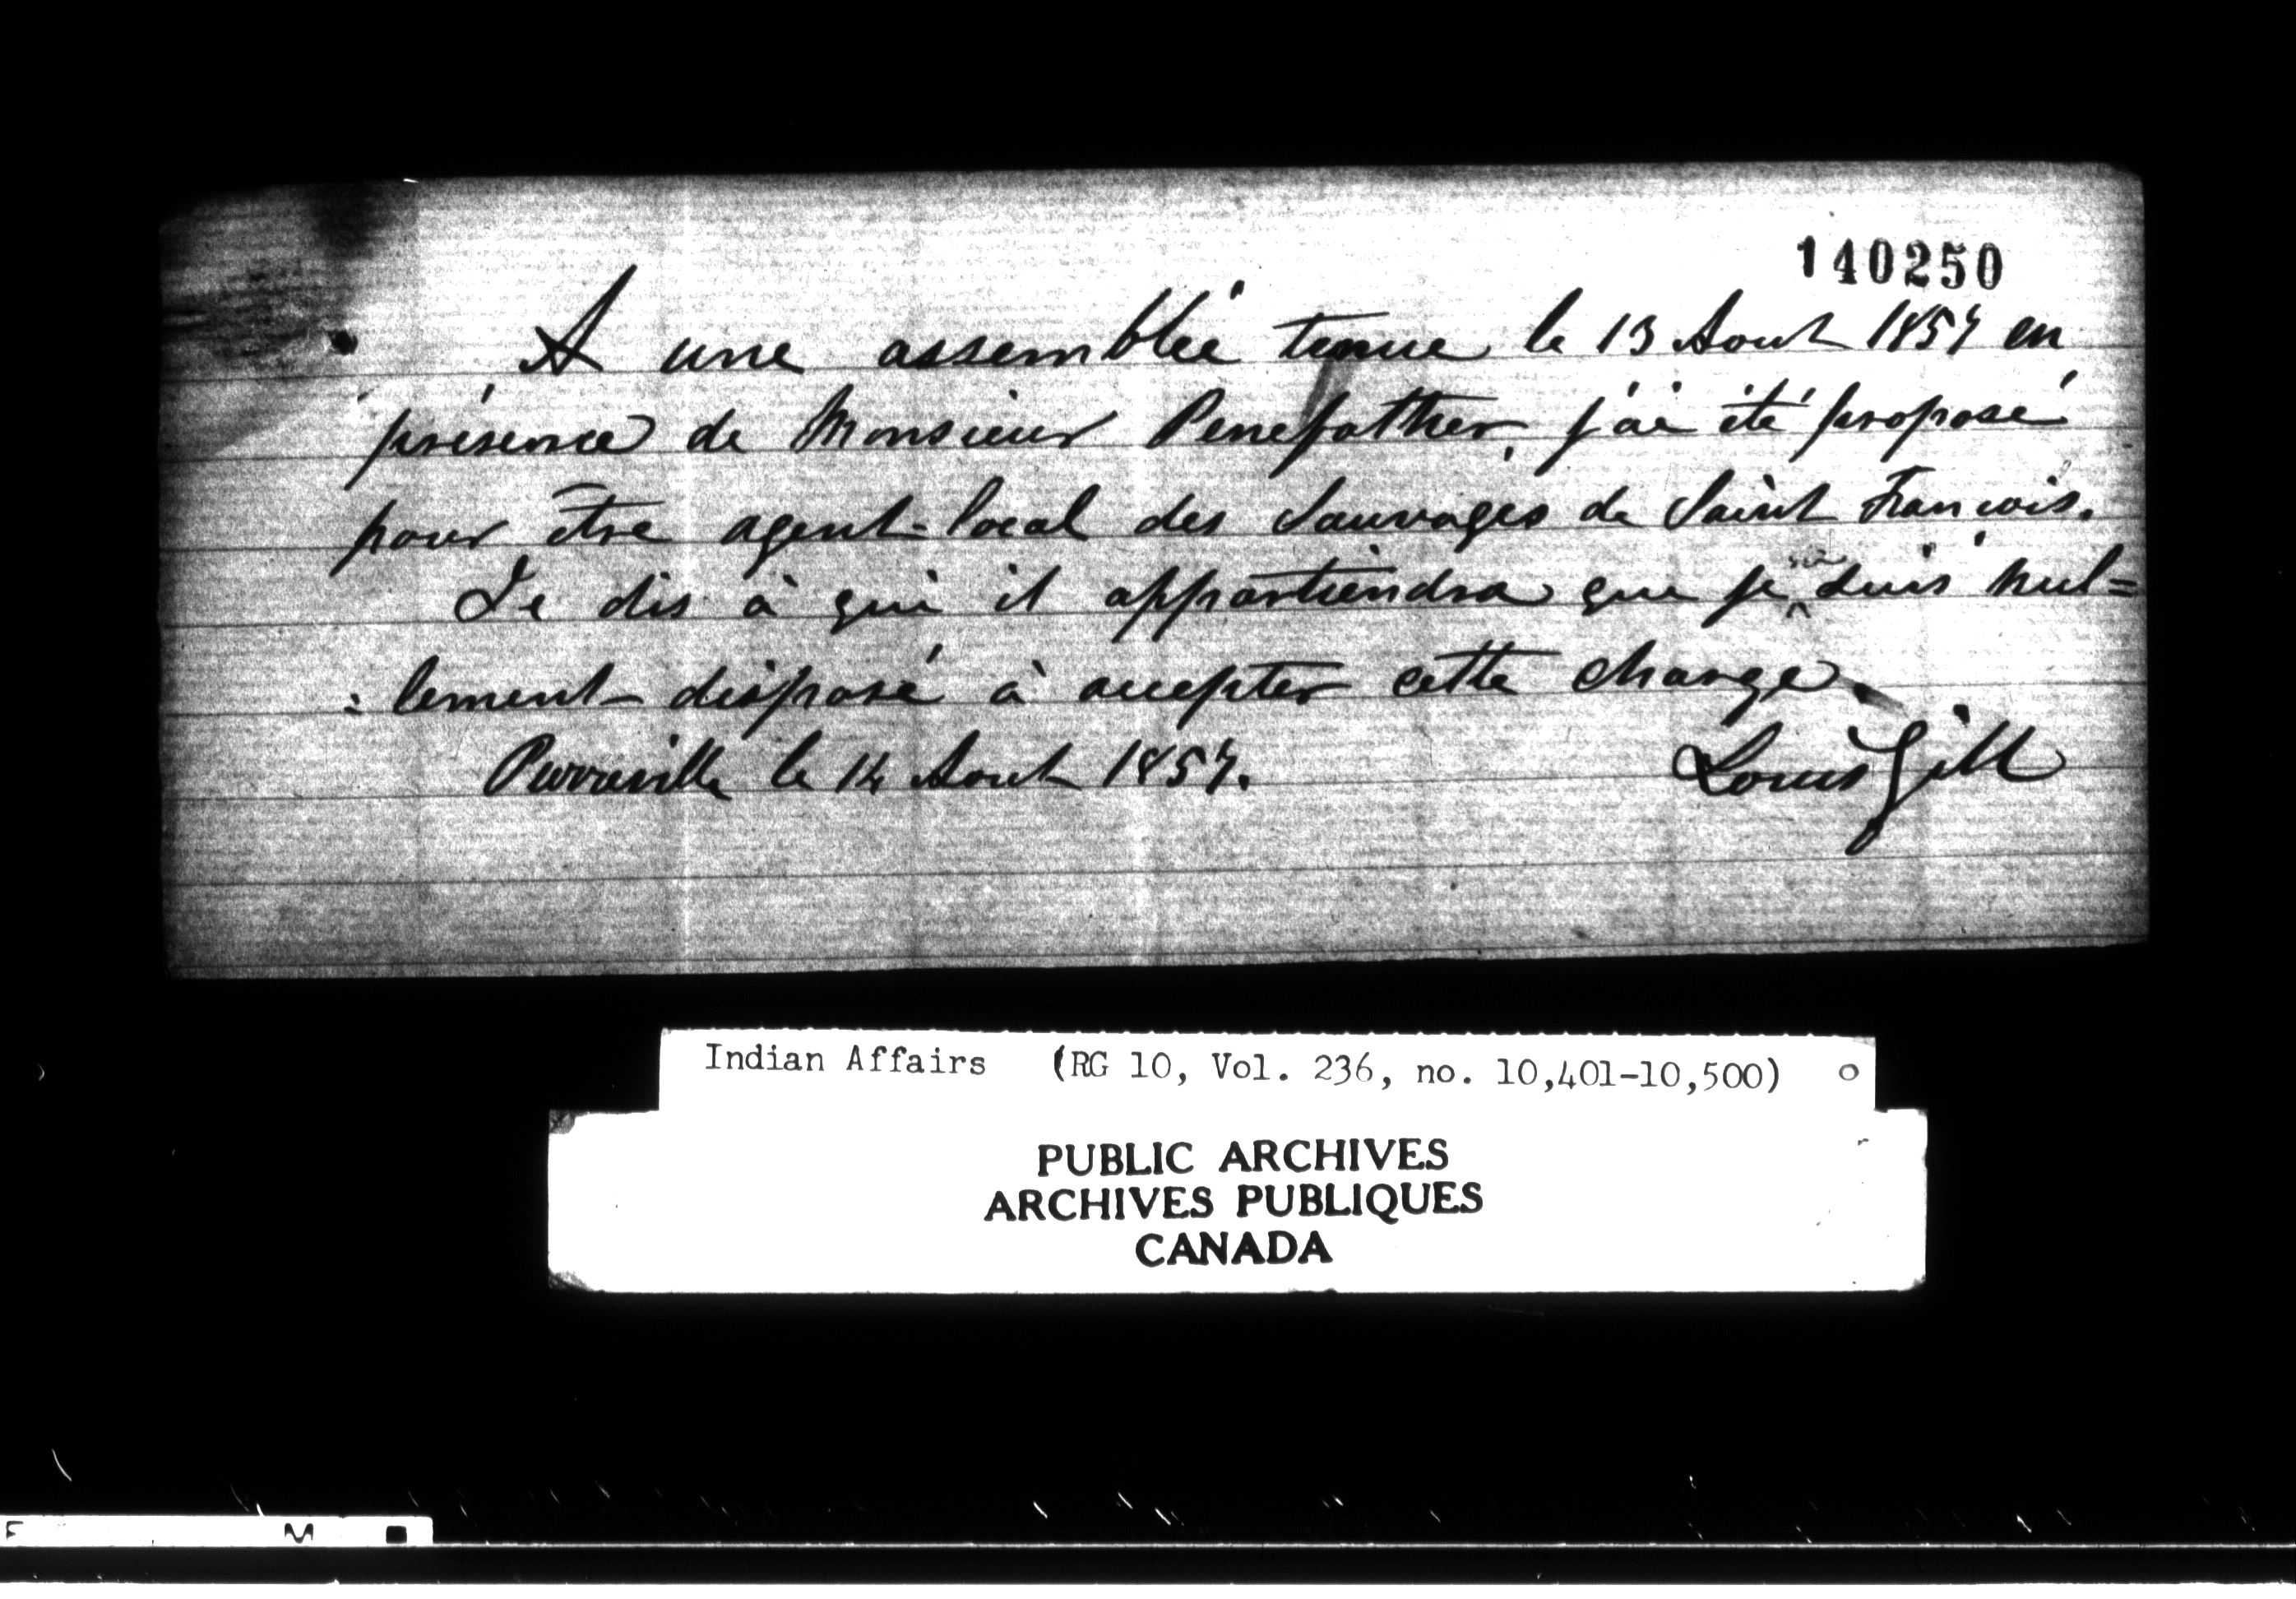 140250
A une assemblée tenue le 13 Aout 1857 en
présence de Monsieur Penefather, j'ai été proposé
pour être agent-local des Sauvages de Saint François.
Je dis à qui il appartiendra que je suis nul=
=lement disposé à accepter cette charge.
Pierreville le 14 Aout 1857.
Louis Gill
Indian Affairs (RG 10, Vol. 236, no. 10,401-10,500)
PUBLIC ARCHIVES
ARCHIVES PUBLIQUES
CANADA